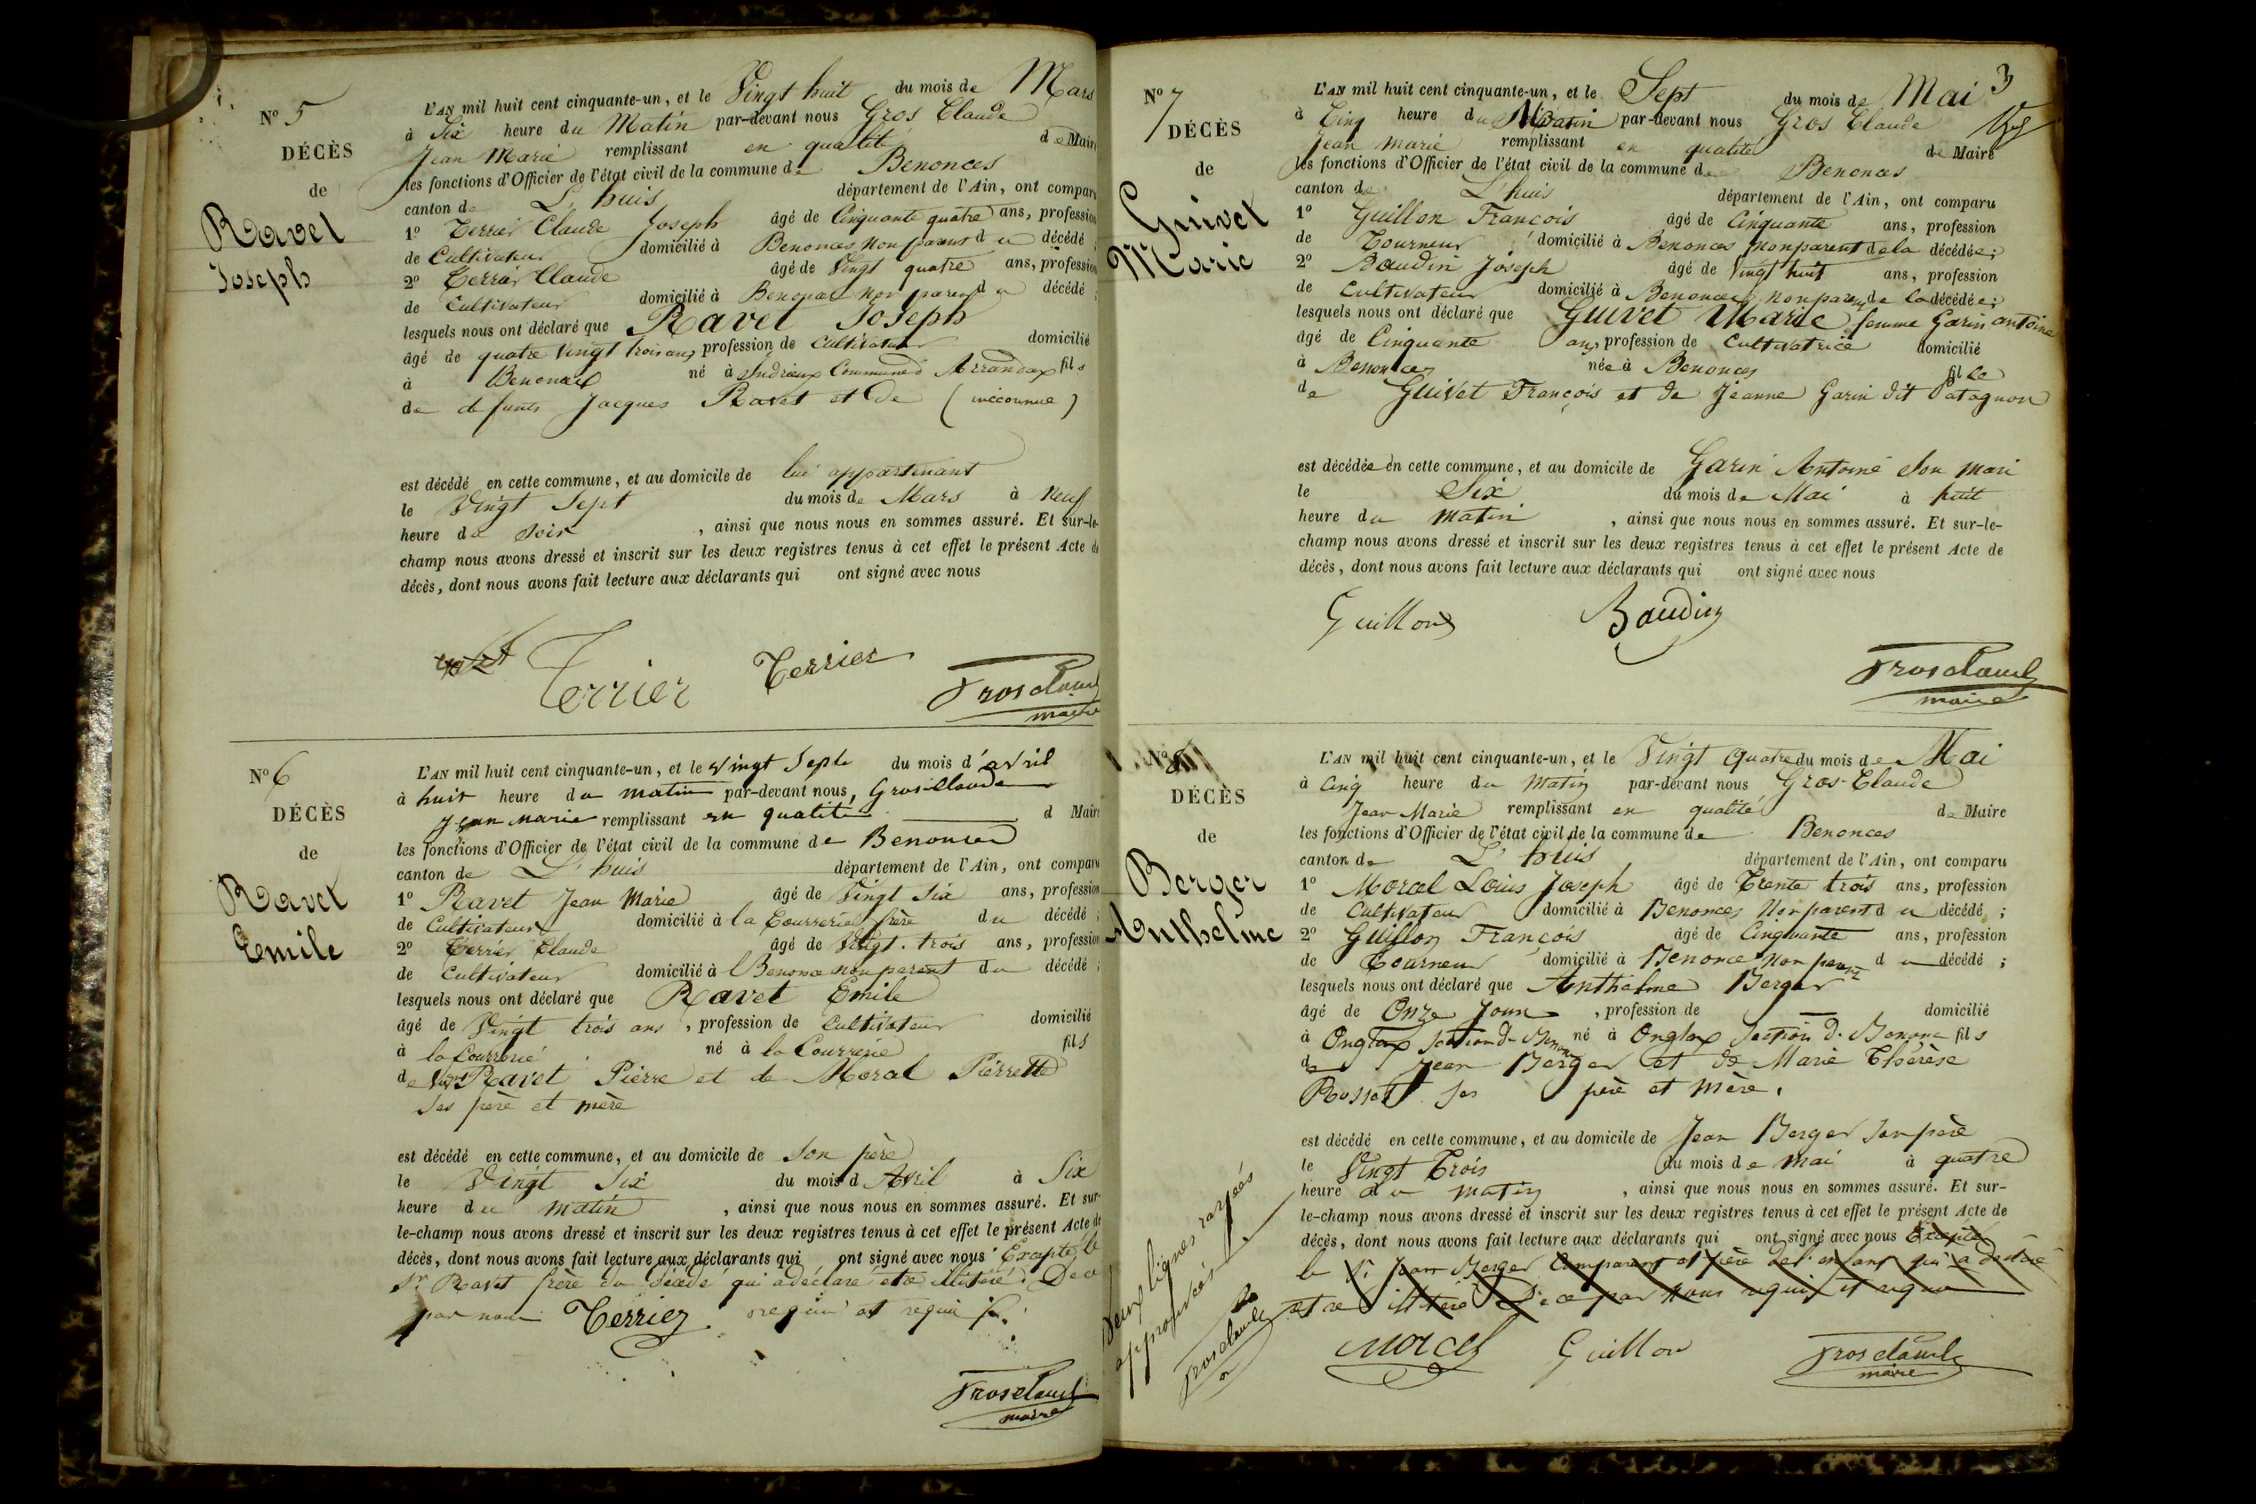 N° 5
DÉCÈS
de
Ravet
Joseph
L'AN mil huit cent cinquante-un, et le Vingt huit du mois de Mars
à Six heure du Matin par-devant nous Gros Claude
Jean Marie remplissant en qualité de Maire
les fonctions d'Officier de l'état civil de la commune de Benonces
canton de L'huis département de l'Ain, ont comparu
1° Terrier Claude Joseph âgé de Cinquante quatre ans, profession
de Cultivateur domicilié à Benonces non parent du décédé ;
2° Terrier Claude âgé de Vingt quatre ans, profession
de Cultivateur domicilié à Benonces non parent du décédé ;
lesquels nous ont déclaré que Ravet Joseph
âgé de quatre Vingt trois ans profession de Cultivateur domicilié
à Benonces né à Indrieux Commune d' Arrandax fils
de defunts Jacques Ravet et de (inconnue)
est décédé en cette commune, et au domicile de lui appartenant
le Vingt Sept du mois de Mars à Neuf
heure du Soir , ainsi que nous nous en sommes assuré. Et sur-le-
champ nous avons dressé et inscrit sur les deux registres tenus à cet effet le présent Acte de
décès, dont nous avons fait lecture aux déclarants qui ont signé avec nous
Terrier Terrier
Grosclaude
maire
N° 6
DÉCÈS
de
Ravet
Emile
L'AN mil huit cent cinquante-un, et le vingt Sept du mois d'avril
à huit heure du matin par-devant nous, Grosclaude
Jean marie remplissant en qualité d Maire
les fonctions d'Officier de l'état civil de la commune de Benonces
canton de L'huis département de l'Ain, ont comparu
1° Ravet Jean Marie âgé de Vingt Six ans, profession
de Cultivateur domicilié à la Courrerie frère du décédé ;
2° Terrier Claude âgé de Vingt trois ans, profession
de Cultivateur domicilié à Benonce non parent du décédé ;
lesquels nous ont déclaré que Ravet Emile
âgé de Vingt trois ans , profession de Cultivateur domicilié
à la Courrerie né à la Courrerie fils
de Ravet Pierre et de Moral Pierrette
Ses père et mère
est décédé en cette commune, et au domicile de Son père
le Vingt Six du mois d Avril à Six
heure du matin , ainsi que nous nous en sommes assuré. Et sur-
le-champ nous avons dressé et inscrit sur les deux registres tenus à cet effet le présent Acte de
décès, dont nous avons fait lecture aux déclarants qui ont signé avec nous Excepté le
Sr Ravet frère du décédé qui a déclaré etre illitéré De ce
par nous Terrier requis et requis
Grosclaude
maire
3
N° 7
DÉCÈS
de
Guivet
Marie
L'AN mil huit cent cinquante-un, et le Sept du mois de Mai
à Cinq heure du Matin par-devant nous Gros Claude
Jean Marie remplissant en qualité de Maire
les fonctions d'Officier de l'état civil de la commune de Benonces
canton de L'huis département de l'Ain, ont comparu
1° Guillon François âgé de Cinquante ans, profession
de Tourneur domicilié à Benonces non parent de la décédée ;
2° Baudin Joseph âgé de Vingt huit ans, profession
de Cultivateur domicilié à Benonces non parent de la décédée ;
lesquels nous ont déclaré que Guivet Marie femme Garin antoine
âgé de Cinquante ans, profession de Cultivatrice domicilié
à Benonces née à Benonces fille
de Guivet François et de Jeanne Garin dit Patagnon
est décédée en cette commune, et au domicile de Garin Antoine Son mari
le Six du mois de Mai à huit
heure du matin , ainsi que nous nous en sommes assuré. Et sur-le-
champ nous avons dressé et inscrit sur les deux registres tenus à cet effet le présent Acte de
décès, dont nous avons fait lecture aux déclarants qui ont signé avec nous
Guillon Baudin
Grosclaude
maire
N° 8
DÉCÈS
de
Berger
Anthelme
L'AN mil huit cent cinquante-un, et le Vingt quatre du mois de Mai
à Cinq heure du Matin par-devant nous Gros Claude
Jean Marie remplissant en qualité de Maire
les fonctions d'Officier de l'état civil de la commune de Benonces
canton de L'huis département de l'Ain, ont comparu
1° Moral Louis Joseph âgé de Trente trois ans, profession
de Cultivateur domicilié à Benonces Non parent du décédé ;
2° Guillon François âgé de Cinquante ans, profession
de Tourneur domicilié à Benonce Non parent du décédé ;
lesquels nous ont déclaré que Anthelme Berger
âgé de Onze Jours , profession de domicilié
à Onglax Section de Benonce né à Onglax Section de Benonce fils
de Jean Berger et de Marie Thérèse
Rosset Ses père et mère.
est décédé en cette commune, et au domicile de Jean Berger Son père
le Vingt Trois du mois de mai à quatre
heure du matin , ainsi que nous nous en sommes assuré. Et sur-
le-champ nous avons dressé et inscrit sur les deux registres tenus à cet effet le présent Acte de
décès, dont nous avons fait lecture aux déclarants qui ont signé avec nous Excepté
le Sr Jean Berger Comparant et père de l'enfant qui a declaré
etre illitéré De ce par nous requis et requis
Deux lignes rayées
approuvées
Grosclaude
Moral Guillon Grosclaude
maire